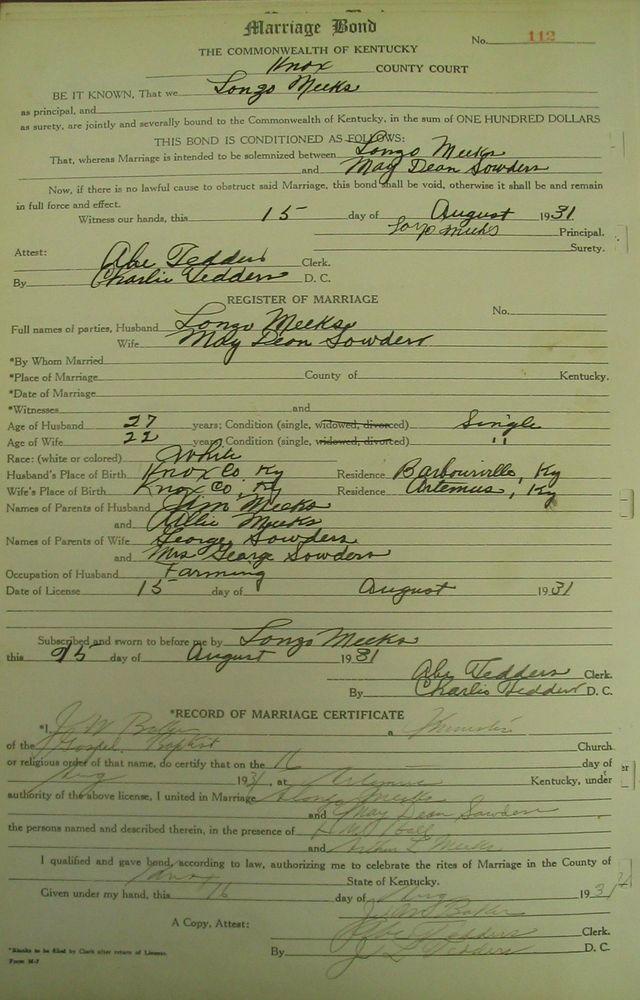 Marriage Bond
No. 112
THE COMMONWEALTH OF KENTUCKY
Knox COUNTY COURT
BE IT KNOWN, That we Lonzo Meeks
as principal, and
as surety, are jointly and severally bound to the Commonwealth of Kentucky, in the sum of ONE HUNDRED DOLLARS
THIS BOND IS CONDITIONED AS FOLLOWS:
That, whereas Marriage is intended to be solemnized between Lonzo Meeks
and May Dean Sowders
Now, if there is no lawful cause to obstruct said Marriage, this bond shall be void, otherwise it shall be and remain
in full force and effect.
Witness our hands, this 15 day of August 1931
Meeks Principal.
Surety.
Attest: Abe Tedders Clerk.
By Charlie Tedders D. C.
REGISTER OF MARRIAGE
No.
Full names of parties, Husband Lonzo Meeks
Wife May Dean Sowders
*By Whom Married
*Place of Marriage County of Kentucky.
*Date of Marriage
*Witnesses and
Age of Husband 27 years; Condition (single, widowed, divorced) Single
Age of Wife 22 years; Condition (single, widowed, divorced) "
Race: (white or colored) White
Husband's Place of Birth Knox Co. Ky Residence Barbourville, Ky
Wife's Place of Birth Knox Co., Ky Residence Artemus, Ky
Names of Parents of Husband Jim Meeks
and Allie Meeks
Names of Parents of Wife George Sowders
and Mrs George Sowders
Occupation of Husband Farming
Date of License 15 day of August 1931
Subscribed and sworn to before me by Lonzo Meeks
this day of August 1931
Abe Tedders Clerk.
By Charlie Tedders D. C.
*RECORD OF MARRIAGE CERTIFICATE
*I, J W Baker a
of the Gospel Baptist Church
or religious order of that name, do certify that on the 16 day of
Aug 1931, at Artemus Kentucky, under
authority of the above license, I united in Marriage Alonzo Meeks
and May Dean Sowders
the persons named and described therein, in the presence of Ball
and Meeks
I qualified and gave bond, according to law, authorizing me to celebrate the rites of Marriage in the County of
Knox State of Kentucky.
Given under my hand, this 16 day of Aug 1931
J W Baker
A Copy, Attest: Abe Tedders Clerk.
By Tedders D. C.
*Blanks to be filed by Clerk after return of License.
Form M-7